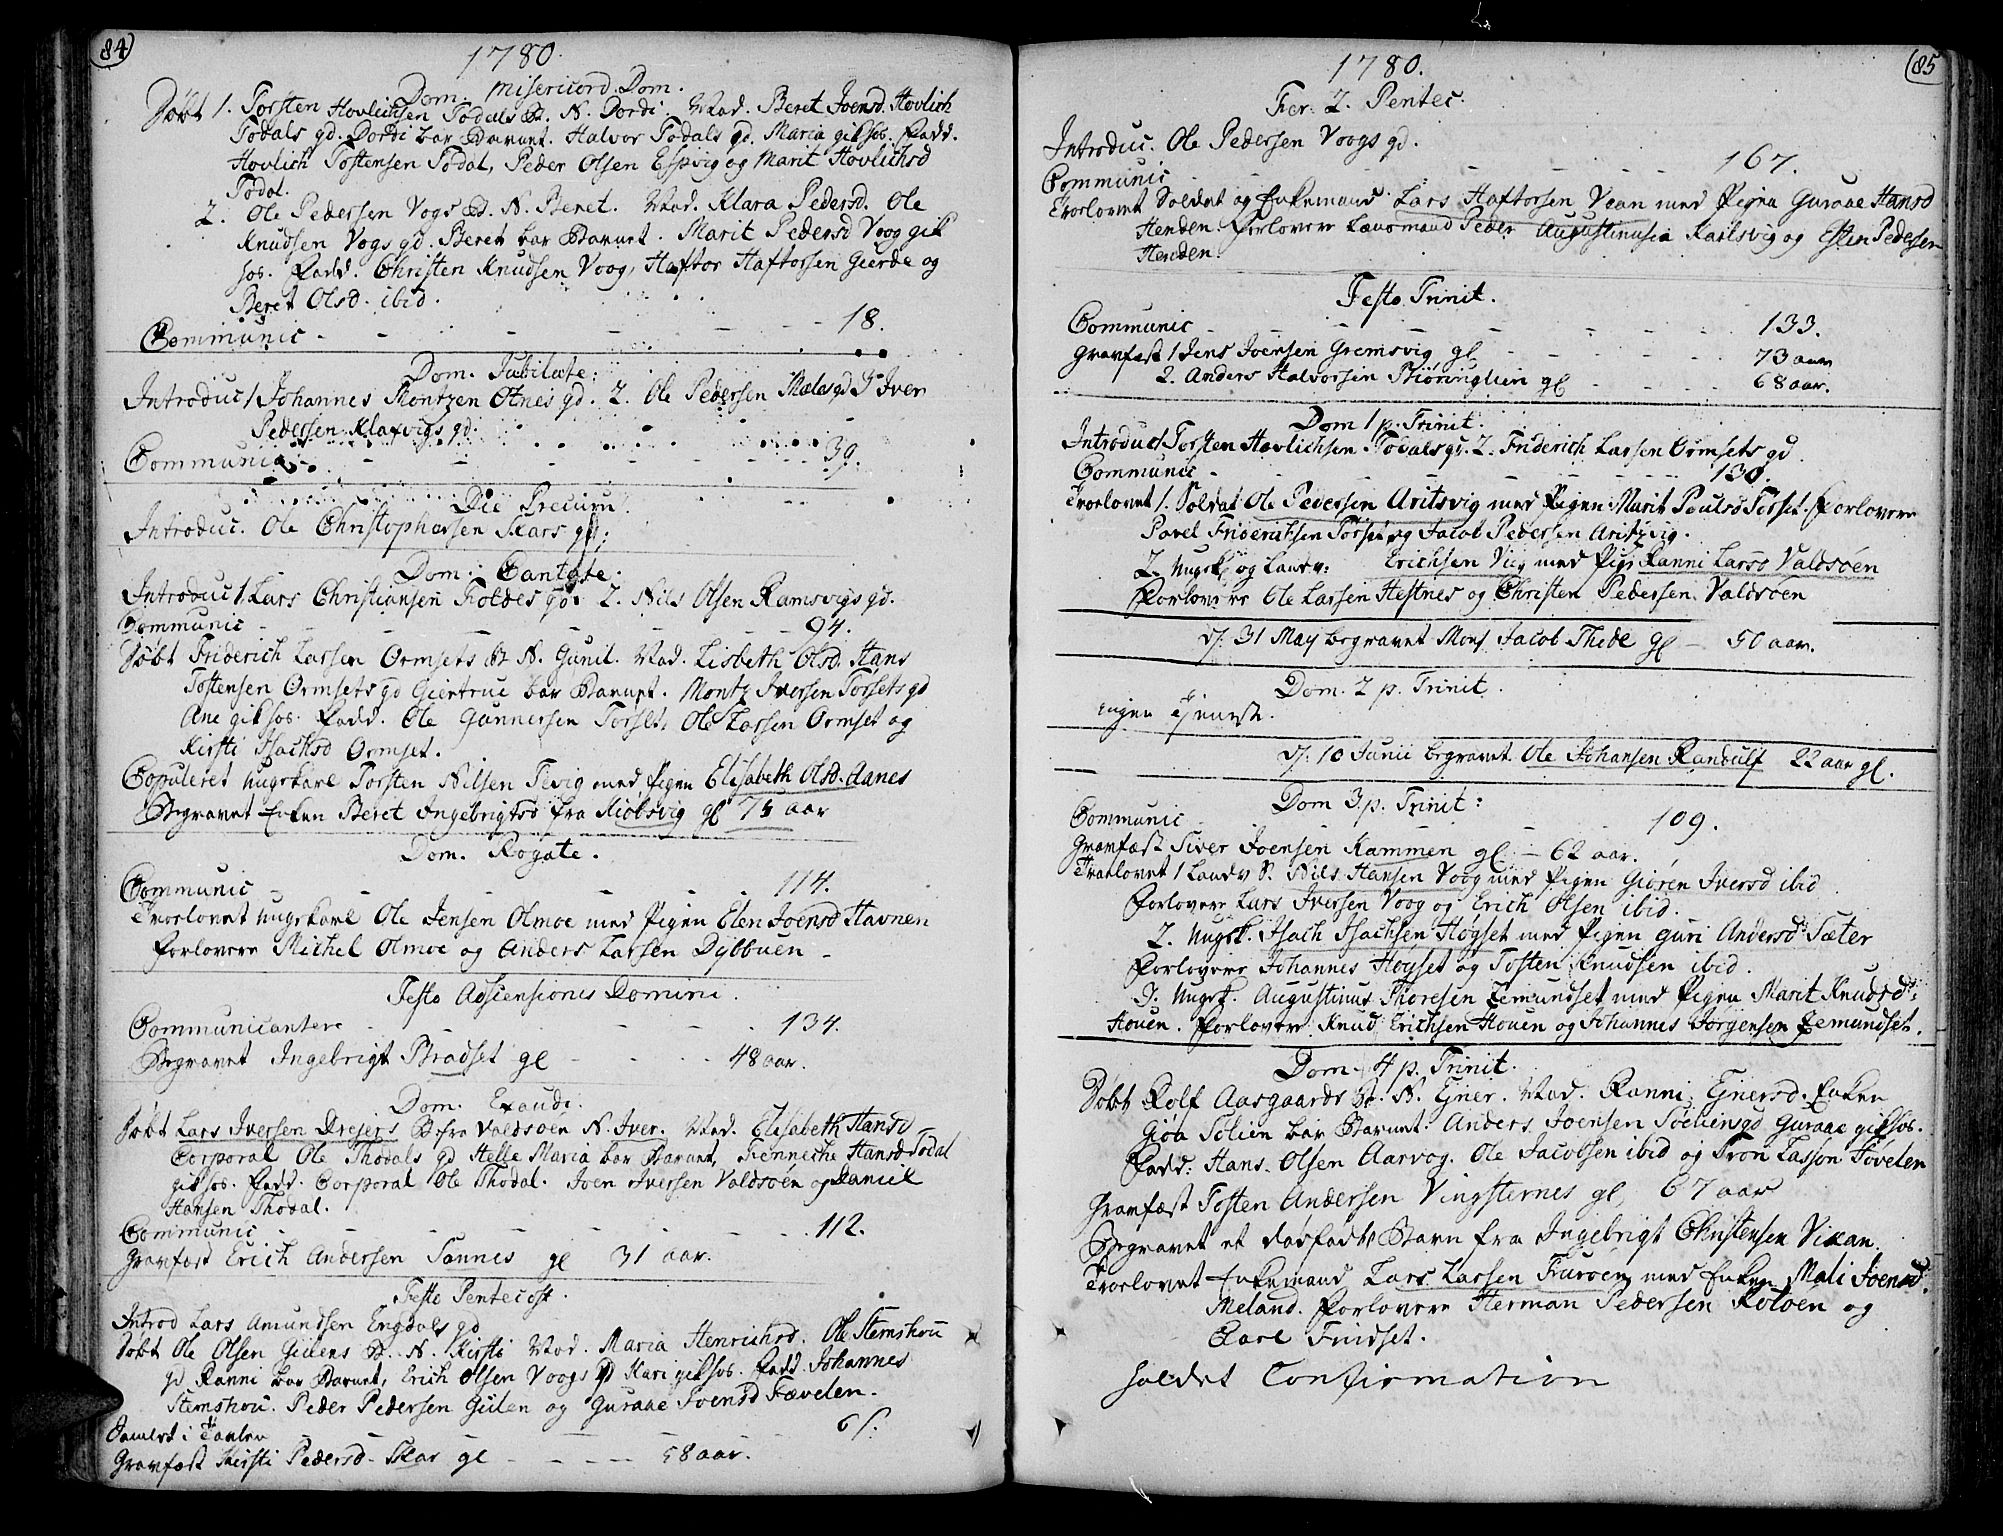 84
1780.
Dom. Misericord. Dom.
Døbt 1. Torsten Hovlichsen Todals B. N. Dordi. Mod. Beret Joensd. Hovlich
Todals gd. Dordi bar Barnet. Halvor Todals gd. Maria gik hos. Fadd.
Hovlich Tostensen Todal, Peder Olsen Espvig og Marit Hovlichsd
Todal.
2. Ole Pedersen Vogs B. N. Beret. Mod. Klara Pedersd. Ole
Knudsen Vogs gd. Beret bar Barnet. Marit Pedersd Voog gik
hos. Fadd. Christen Knudsen Voog, Haftor Haftorsen Gierde og
Beret Olsd. ibid.
Communic - - - - - 18.
Dom. Jubilate.
Introduc 1 Johannes Montzen Otnes gd. 2. Ole Pedersen Mæles gd 3 Iver
Pedersen Klafvigs gd.
Communic - - - - - 39.
Die Precum.
Introduc. Ole Christophersen Skars gd.
Dom. Cantate.
Introduc 1. Lars Christiansen Foldes gd. 2. Nils Olsen Ramsvigs gd.
Communic - - - - - 94.
Døbt Friderich Larsen Ormsets B N. Gunil. Mod. Lisbeth Olsd. Hans
Tostensen Ormsets gd Giertrue bar Barnet. Montz Iversen Torsets gd
Ane gik hos. Fadd. Ole Gunnersen Torset, Ole Larsen Ormset og
Kirsti Isachsd Ormset.
Copuleret Ungekarl Torsten Nilsen Tevig med Pigen Elisabeth Olsd. Aanes
Begravet Enken Beret Ingebrigtsd fra Kiøbsvig gl 73 aar
Dom. Rogate.
Communic - - - - - 114.
Troelovet Ungekarl Ole Jensen Olmoe med Pigen Elen Joensd Havnen
Forlovere Michel Olmoe og Anders Larsen Dybbuen -
Festo Adscensionis Domini.
Communicantere - - - - - 134.
Begravet Ingebrigt Bradset gl - - - - 48 aar.
Dom. Exaudi.
Døbt Lars Iversen Drejers B. fra Valdsøen N. Iver. Mod. Elisabeth Hansd
Corporal Ole Thodals gd Helle Maria bar Barnet, Hansd Todal
gik hos. Fadd. Corporal Ole Thodal. Joen Iversen Valdsøen og Daniel
Hansen Thodal.
Communic - - - - - 112.
Gravfæst Erich Andersen Sannes gl 31 aar.
Festo Pentecost.
Introd Lars Amundsen Engdals gd
Døbt Ole Olsen Giulens B. N. Kirsti Mod. Maria Henrichsd. Ole Stemshou
gd Ranni bar Barnet, Erich Olsen Voogs gd Kari gik hos. Fadd. Johannes
Stemshou. Peder Pedersen Giulen og Guraae Joensd Fævelen.
Samlet i Tavlen - - - - 6/.
Gravfæst Kirsti Pedersd. Skar gl - - - - 58 aar.
85
1780.
Fer. 2. Pentec.
Introduc. Ole Pedersen Voogs gd.
Communic - - - - - 167.
Troelovet Soldat og Enkemand Lars Haftorsen Vean med Pigen Guraae Hansd
Henden. Forlovere Lensmand Peder Augustinusen Karlsvig og Esten Pedersen
Henden.
Festo Trinit.
Communic - - - - - 133.
Gravfæst 1 Jens Joensen Gremsvig gl - - - - 73 aar
2. Anders Halvorsen Biøringlien gl - - - - 68 aar.
Dom 1 p. Trinit.
Introduc 1 Torsten Hovlichsen Todals gd. 2. Friderich Larsen Ormsets gd.
Communic - - - - - 130.
Troelovet 1. Soldat Ole Pedersen Aritsvig med Pigen Marit Poulsd Torset. Forlovere
Povel Friderichsen Torset og Jacob Pedersen Aritzvig.
2. Ungek og Landv: Erichsen Viig med Pige Ranni Larsd Valdsøen
Forlovere Ole Larsen Hestnes og Christen Pedersen Valdsøen
d. 31 May begravet Mons Jacob Thede gl - 50 aar.
Dom. 2 p. Trinit.
ingen Tjeneste.
d. 10 Junii begravet Ole Johansen Randulf 22 aar gl.
Dom 3. p. Trinit:
Communic - - - - - 109.
Gravfæst Siver Joensen Kammen gl - 62 aar.
Troelovet 1 Landv S. Nils Hansen Voog med Pigen Giøren Iversd ibid.
Forlovere Lars Iversen Voog og Erich Olsen ibid.
2. Ungek. Isach Isachsen Høgset med Pigen Guri Andersd Sæter
Forlovere Johannes Høgset og Tosten Knudsen ibid.
3. Ungek. Augustinus Thoresen Zemundset med Pigen Marit Knudsd:
Houen. Forlovere Knud Erichsen Houen og Johannes Jørgensen Zemundset.
Dom. 4 p. Trinit.
Døbt Rolf Aasgaards B. N. Ejner. Mod. Ranni Ejnersd. Enken
Gioa Solien bar Barnet. Anders Joensen Soeliens gd Guraae gik hos.
Fadd: Hans Olsen Aarvog. Ole Jacobsen ibid og Tron Lassøn Føvelen
Gravfæst Tosten Andersen Vingsternes gl, 67 aar
Begravet et dødfødt Barn fra Ingebrigt Christensen Vikan.
Troelovet Enkemand Lars Larsen Furøen med Enken Mali Joensd.
Meland. Forlovere Herman Pedersen Rotøen og
Carl Findset.
holdet Confirmation